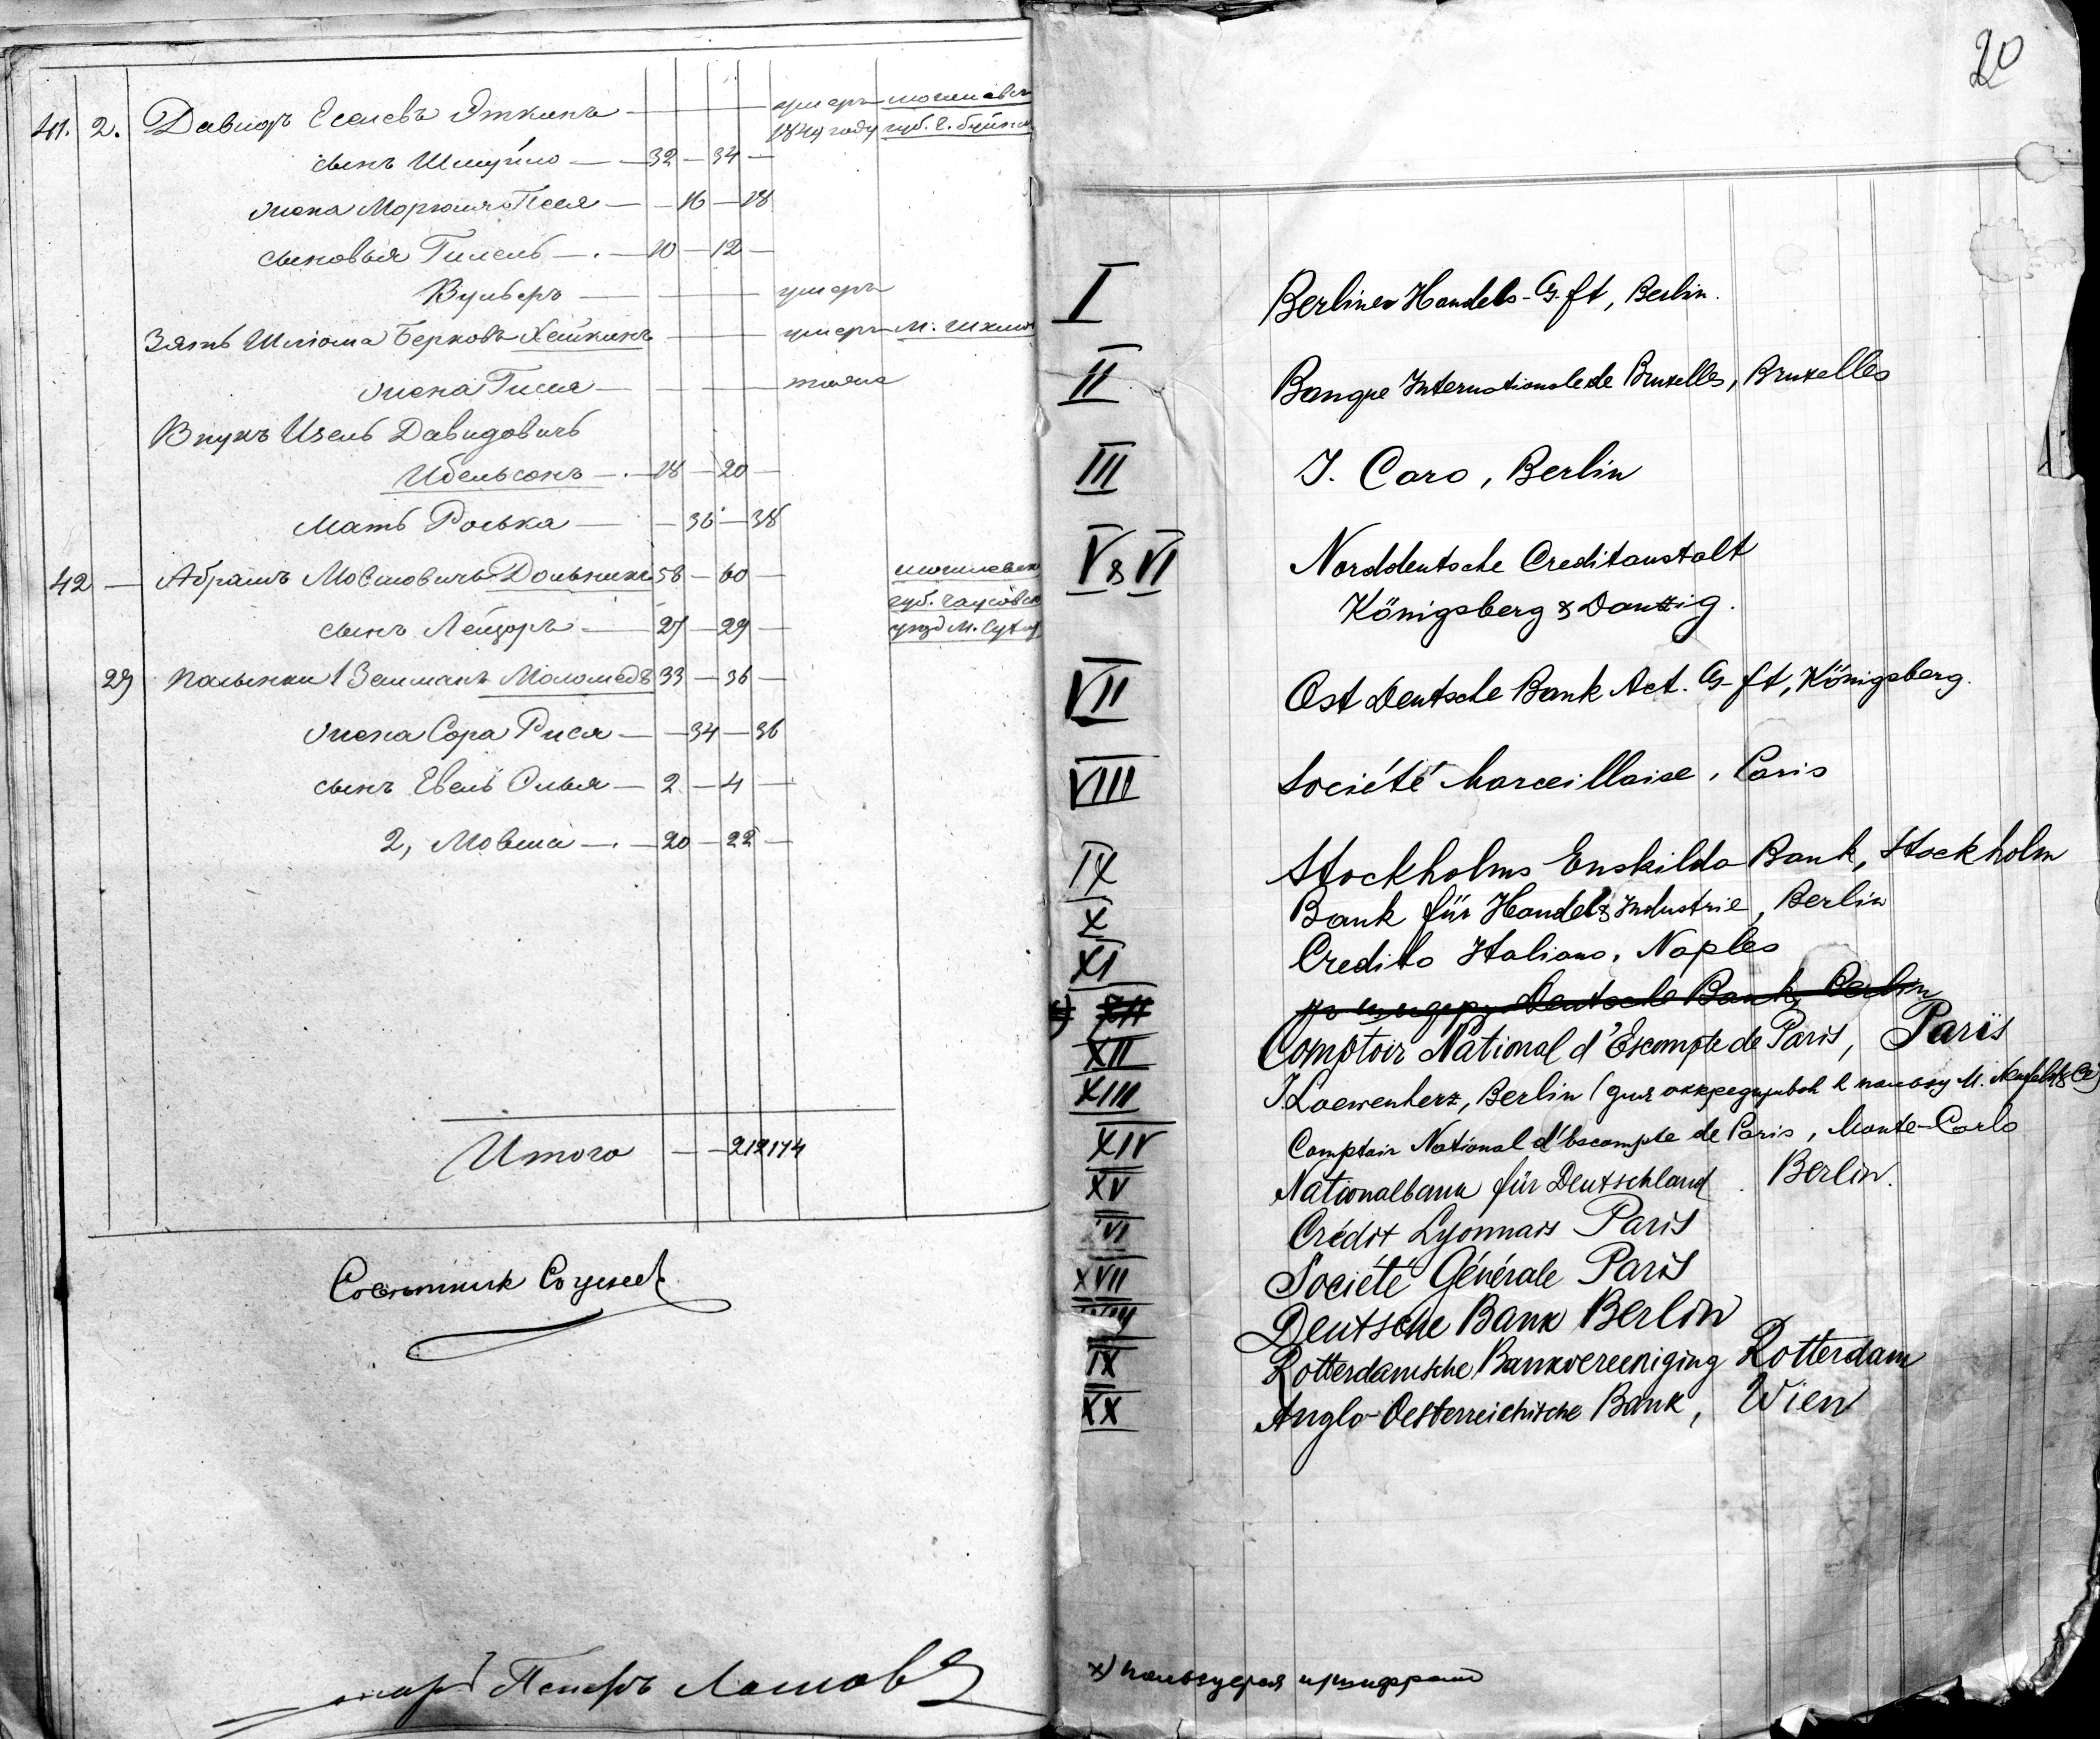 41. 2. Давидъ Еселевъ Эткинъ — умеръ
1849 году губ. г.
сынъ Шмуйло — 32 — 34 —
жена Песя — 16 — 18
сыновья Гилель — 10 — 12 —
Вульфъ — умеръ
Зять Шліома Берковъ Хейкинъ — умеръ м.
жена Гися — тоже
Внукъ Изель Давидовичь
Ибельсонъ — 18 — 20 —
Мать Роська — 36 — 38
42 — Абрамъ Мовшовичь 58 — 60 —
губ.
сынъ Лейзоръ — 27 — 29 —
уезд М.
29 Залманъ 33 — 36 —
жена Сора Рися — 34 — 36
сынъ Евель — 2 — 4 —
2, Мовша — 20 — 22 —
Итого — 212 174
Советникъ
Петръ
20
I Berliner Handels-G-ft, Berlin.
II Banque Internationale de Bruxelles, Bruxelles
III J. Caro, Berlin
V & VI Norddeutsche Creditanstalt
Königsberg & Danzig.
VII Ost Deutsche Bank Act. G-ft, Königsberg.
VIII Société Marseillaise, Paris
IX Stockholms Enskilda Bank, Stockholm
X Bank für Handel & Industrie, Berlin
XI Credito Italiano, Naples
XII Deutsche Bank, Berlin
XII Comptoir National d'Escompte de Paris, Paris
XIII J. Loewenherz, Berlin (для М.
XIV Comptoir National d'Escompte de Paris, Monte-Carlo
XV Nationalbank für Deutschland. Berlin.
VI Crédit Lyonnais Paris
XVII Société Générale Paris
Deutsche Bank Berlin
IX Rotterdamsche Bankvereeniging Rotterdam
XX Anglo-Oesterreichische Bank, Wien
x)